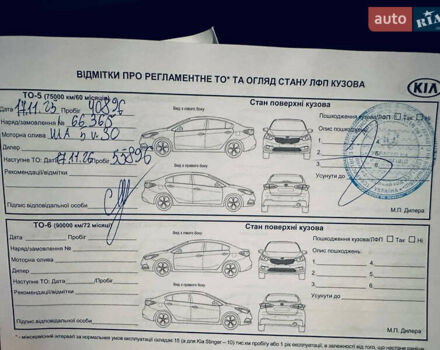 auto RIA
ВІДМІТКИ ПРО РЕГЛАМЕНТНЕ ТО* ТА ОГЛЯД СТАНУ ЛФП КУЗОВА
KIA
ТО-5 (75000 км/60 місяців)
Стан поверхні кузова
Дата 17.11.25 Пробіг 40896
Вид з лівого боку
Пошкодження кузова/ЛФП Так Ні
Наряд/замовлення № 66365
Опис пошкоджень:
Моторна олива 5w30
1. 4.
Дилер
2. 5.
Наступне ТО: Дата 17.11.26 Пробіг 55896
3. 6.
Рекомендації/відмітки
Вид з правого боку
Усунути до
Підпис відповідальної особи
М.П. Дилера
ТО-6 (90000 км/72 місяці)
Стан поверхні кузова
Дата Пробіг
Вид з лівого боку
Пошкодження кузова/ЛФП Так Ні
Наряд/замовлення №
Опис пошкоджень:
Моторна олива
1. 4.
Дилер
2. 5.
Наступне ТО: Дата /Пробіг
3. 6.
Рекомендації/відмітки
Вид з правого боку
Усунути до
Підпис відповідальної особи
М.П. Дилера
* - міжсервісний інтервал за нормальних умов експлуатації складає 15 (а для Kia Stinger – 10) тис.км пробігу або 1 рік експлуатації, в залежності від того, що настане раніше